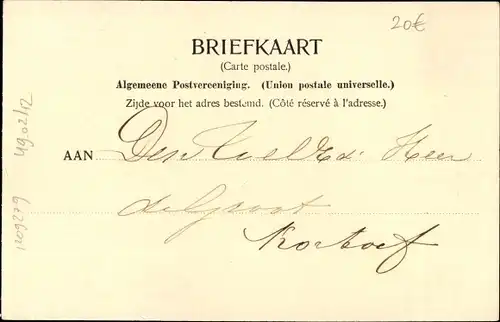 20€
BRIEFKAART
(Carte postale.)
Algemeene Postvereeniging. (Union postale universelle.)
Zijde voor het adres bestemd. (Côté réservé à l'adresse.)
AAN Den Heer
de Groot
Kortoef
49.02/12
1209279